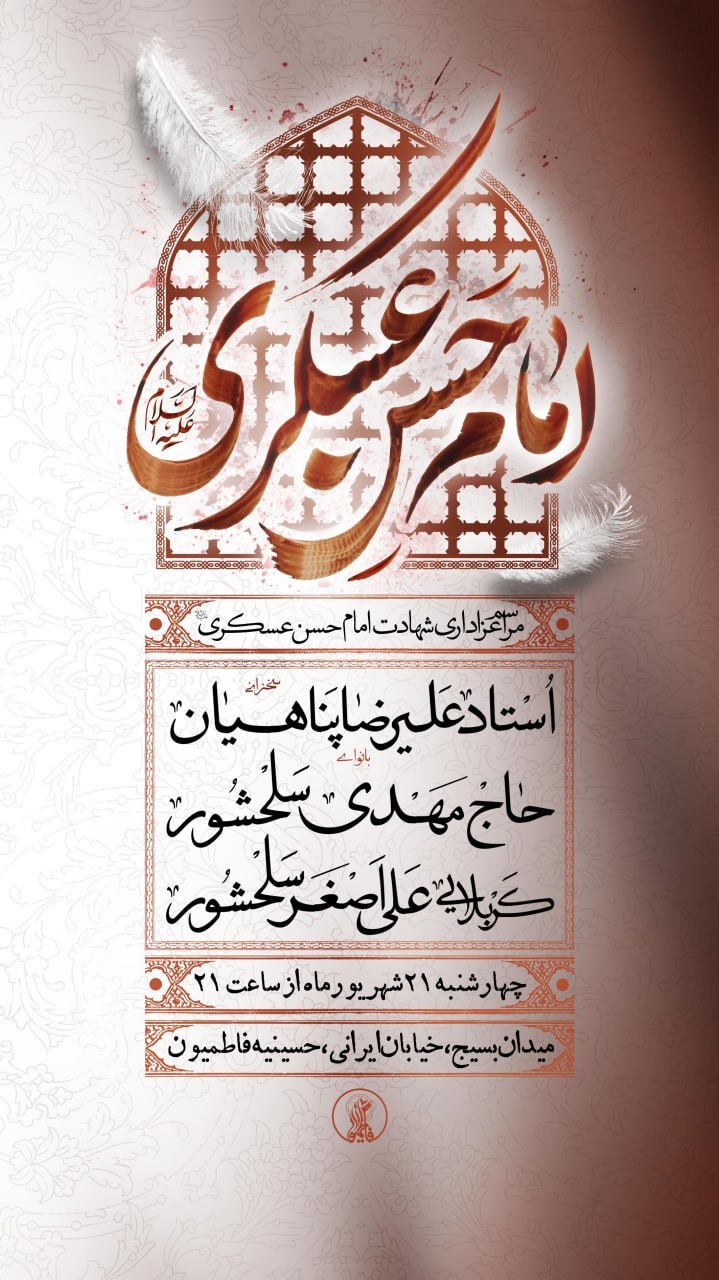 امام حسن عسکری
علیه السلام
مراسم عزاداری شهادت امام حسن عسکری
سخنرانی
اُستاد عَلیرضا پَناهیان
بانوای
حاج مَهدی سَلحشور
کَربلایی عَلی اَصغَر سَلحشور
چهارشنبه ۲۱ شهریور ماه از ساعت ۲۱
میدان بسیج، خیابان ایرانی، حسینیه فاطمیون
فاطمیون